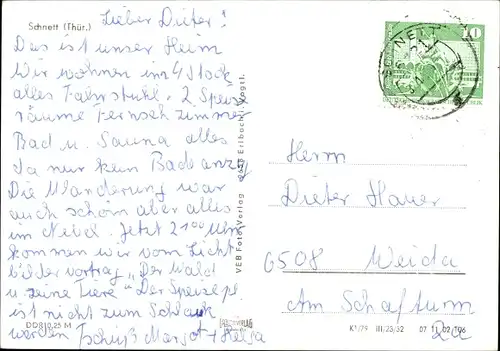 Schnett (Thür.)
Lieber Dieter!
Das ist unser Heim
Wir wohnen im 4 Stock
alles Fahrstuhl. 2 Speise
räume Fernsehzimmer
Bad u. Sauna alles
Da nur kein Badanzg
Die Wanderung war
auch schön aber alles
im Nebel. Jetzt 21⁰⁰ Uhr
kommen wir vom Licht
bildervortrag „Der Wald
u seine Tiere" Der Speisepl
ist nicht zum Schlank
werden Tschüß Margot + Helga
DDR 10,25 M
VEB Foto-Verlag 9653 Erlbach i. Vogtl.
10
SCHNETT
Herrn
Dieter Hauer
6508 Weida
Am Schafturm
2a
K1/79 III/23/32 07 11 02 106